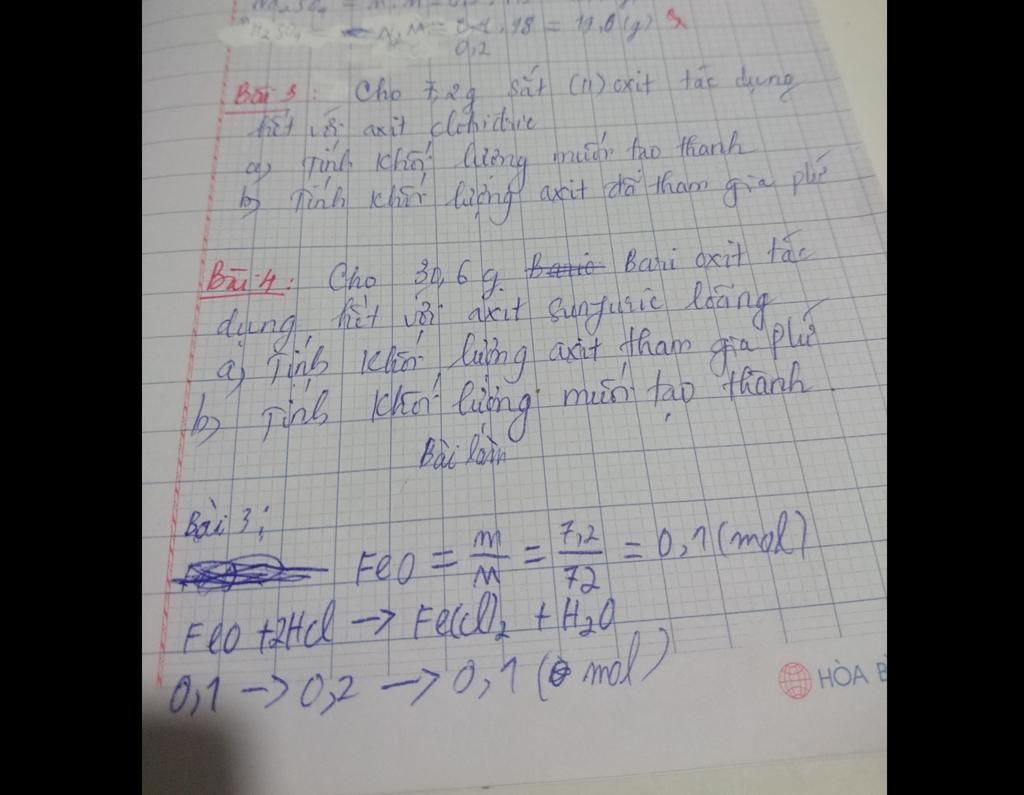 = 19,6 (g)
0,2
Bài 3: Cho 7,2g sắt (II) oxit tác dụng
hết với axit clohidric
a) Tính khối lượng muối tạo thanh
b) Tính khối lượng axit đã tham gia phứ
Bài 4: Cho 30,6 g Bari oxit tác
dụng hết với axit sunfuric loãng
a) Tính khối lượng axit tham gia phứ
b) Tính khối lượng muối tạo thành.
Bài làm
Bài 3:
FeO = m/M = 7,2/72 = 0,1 (mol)
FeO + 2HCl → Fe(Cl)₂ + H₂O
0,1 → 0,2 → 0,1 (mol)
HÒA B